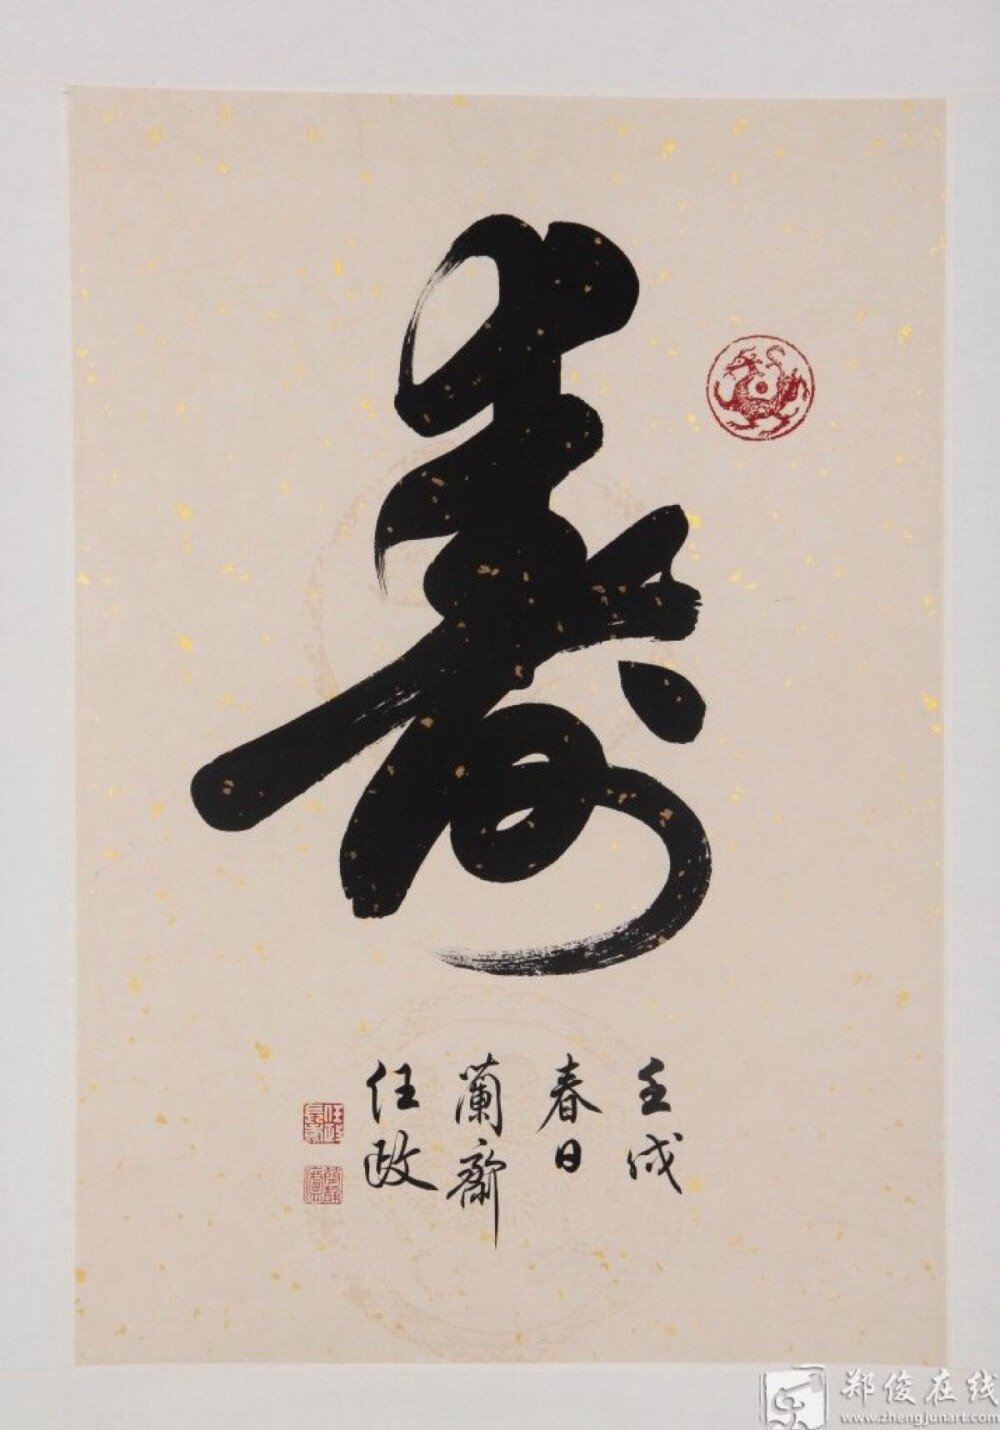 寿
壬戌
春日
蘭齋
任政
郑俊在线
www.zhengjunart.com